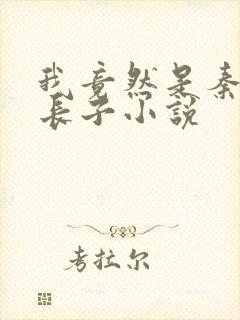 我竟然是秦
长子小说
考拉尔